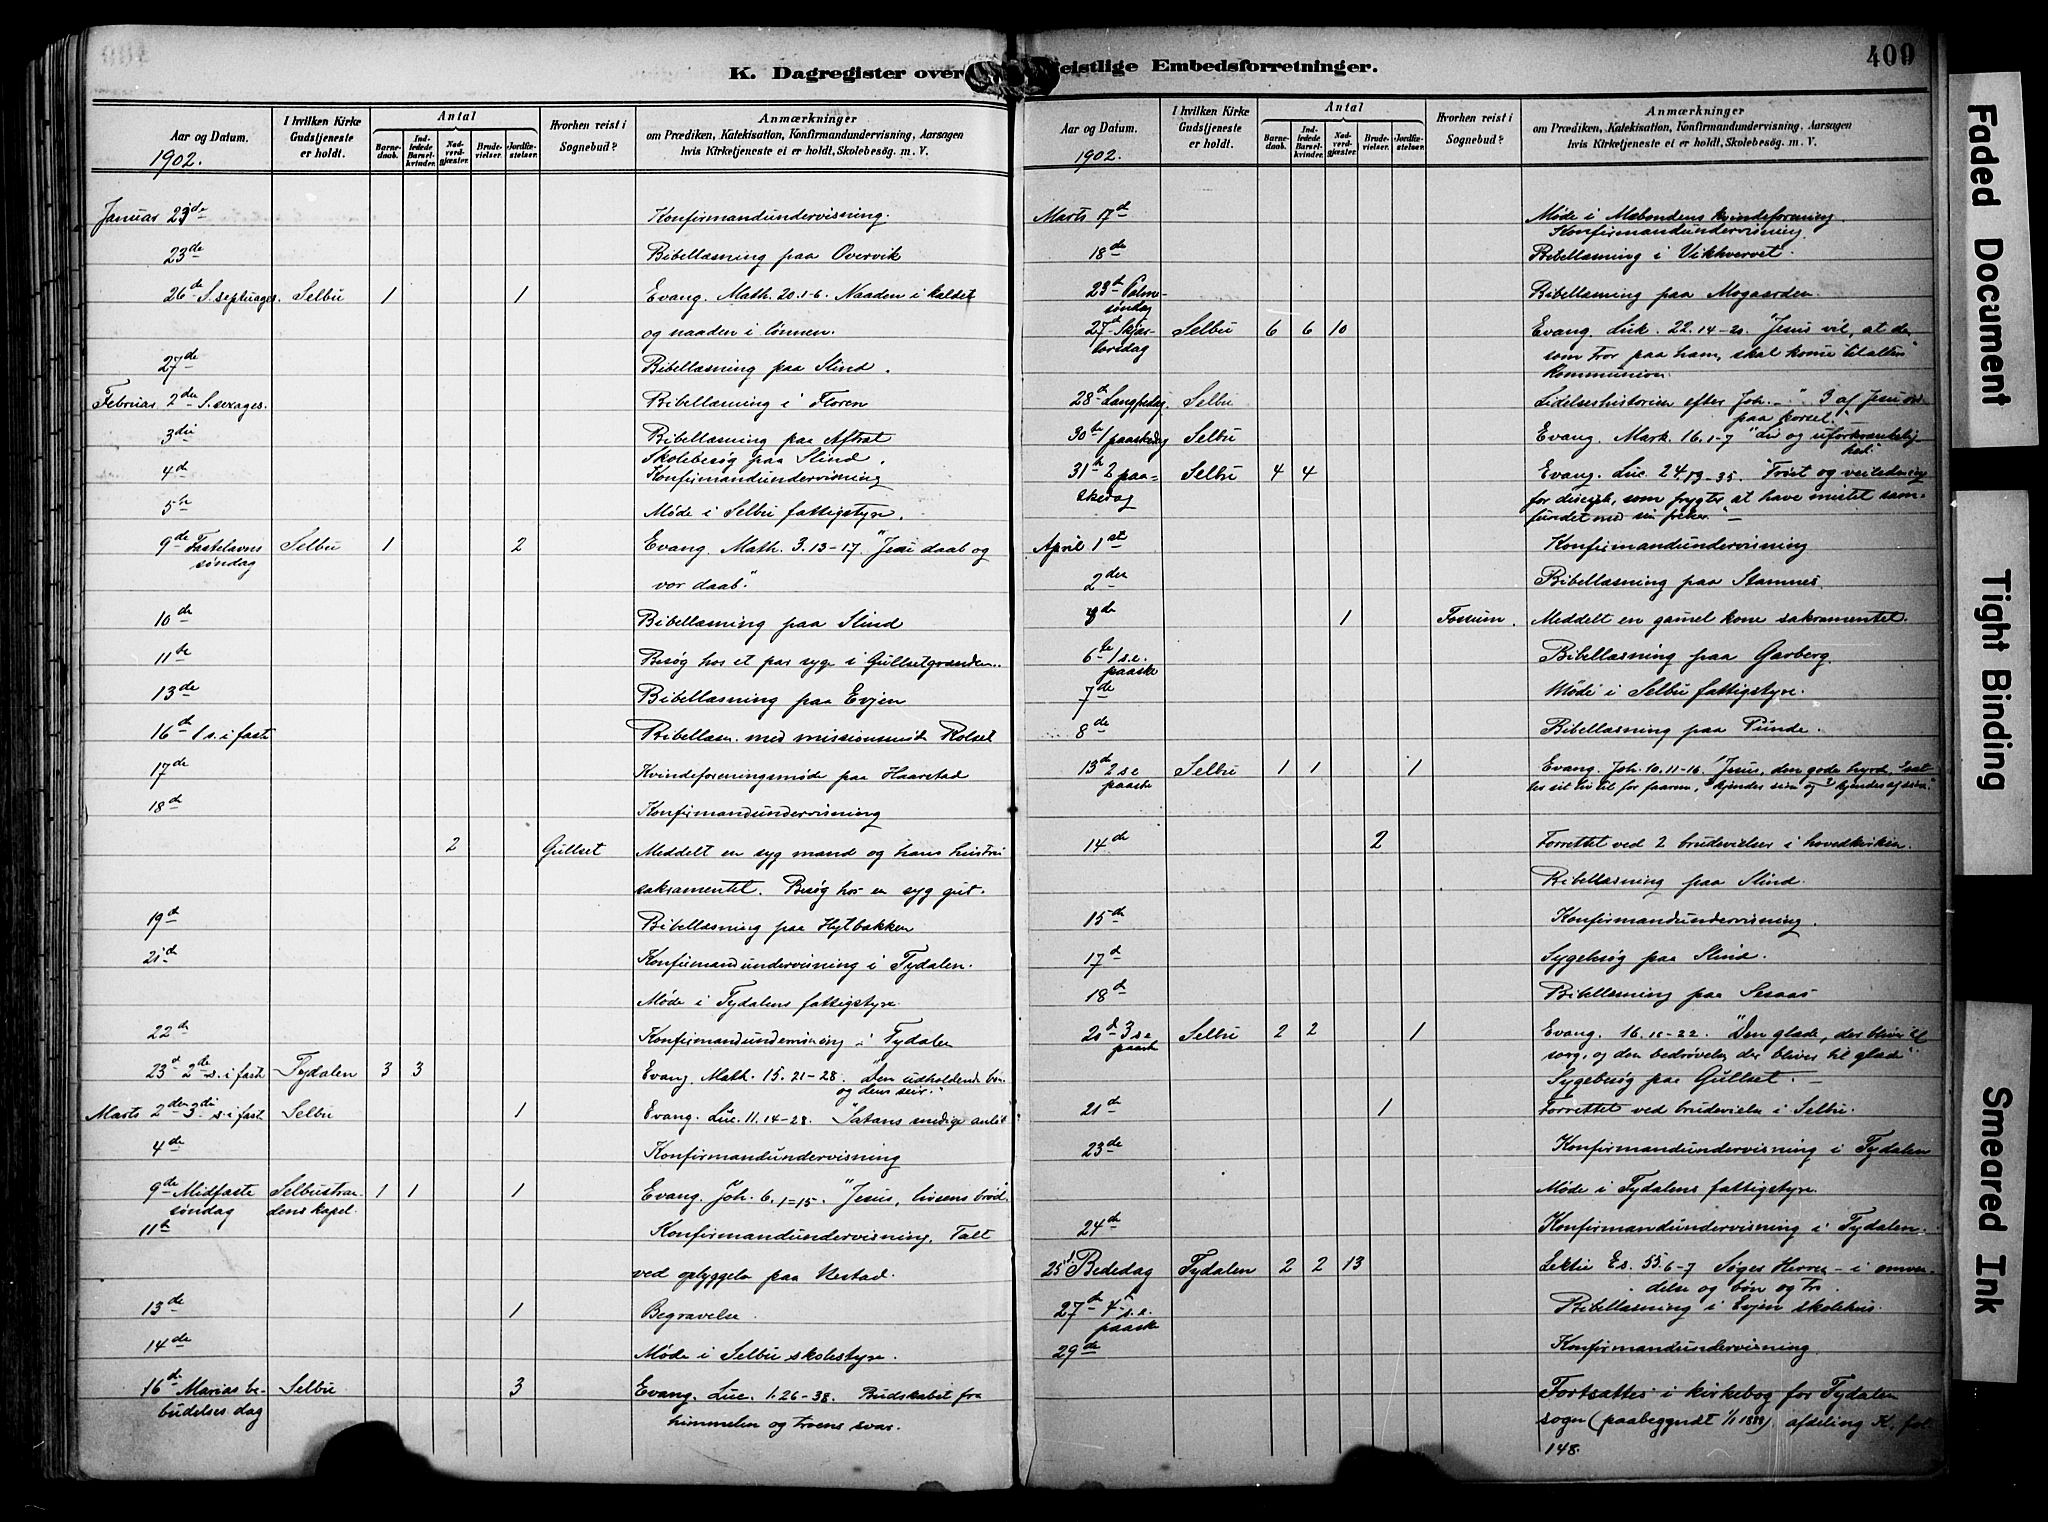 K. Dagregister over
Aar og Datum.
1902.
I hvilken Kirke
Gudstjeneste
er holdt.
Antal
Barne-
daab.
Ind-
ledede
Barsel-
kvinder.
Nad-
verd-
gjæster.
Brude-
vielser.
Jordfæ-
stelser.
Hvorhen reist i
Sognebud?
Anmærkninger
om Prædiken, Katekisation, Konfirmandundervisning, Aarsagen
hvis Kirketjeneste ei er holdt, Skolebesøg. m. V.
Januar 23de Konfirmandundervisning.
23de Bibellæsning paa Overvik
26de S. septuages. Selbu 1 1 Evang. Math. 20.1-6. Naaden i kaldet
og naaden i lønnen.
27de Bibellæsning paa Slind.
Februar 2den S. sexages. Bibellæsning i Floren
3die Bibellæsning paa Aftret
Skolebesøg paa Slind.
4d Konfirmandundervisning
5te Møde i Selbu fattigstyre.
9de Fastelavns Selbu 1 2 Evang. Math. 3.13-17. "Jesu daab og
søndag
vor daab".
10de Bibellæsning paa Slind
11te Besøg hos et par syge i Gullsetgrænden.
13de Bibellæsning paa Evjen
16de 1 s. i faste Bibellæsn. med missionsmøde Rolset
17de Kvindeforeningsmøde paa Haarstad
18de Konfirmandundervisning
2 Gullset Meddelt en syg mand og hans hustru
sakramentet. Besøg hos en syg gut.
19d Bibellæsning paa Hytbakken
21d Konfirmandundervisning i Tydalen.
Møde i Tydalens fattigstyre.
22de Konfirmandundervisning i Tydalen
23d 2de s. i fast Tydalen 3 3 Evang. Math. 15. 21-28. "Den udholdende bøn
og dens seir."
Marts 2den 3di s. i fast Selbu 1 Evang. Luc. 11.14-28. "Satans
4de Konfirmandundervisning
9de Midfaste Selbustran- 1 1 1 Evang. Joh. 6.1-15. "Jesus, livsens brød.
søndag dens kapel.
11te Konfirmandundervisning. Talt
ved opbyggelse paa Nestad.
13de 1 Begravelse.
14de Møde i Selbu skolestyre.
16de Marias be- Selbu 3 Evang. Luc. 1.26-38. Budskabet fra
budelses dag himmelen og troens svar.
geistlige Embedsforretninger.
400
Aar og Datum.
1902.
I hvilken Kirke
Gudstjeneste
er holdt.
Antal
Barne-
daab.
Ind-
ledede
Barsel-
kvinder.
Nad-
verd-
gjæster.
Brude-
vielser.
Jordfæ-
stelser.
Hvorhen reist i
Sognebud?
Anmærkninger
om Prædiken, Katekisation, Konfirmandundervisning, Aarsagen
hvis Kirketjeneste ei er holdt, Skolebesøg. m. V.
Marts 17d Møde i Mebondens kvindeforening
Konfirmandundervisning.
18de Bibellæsning i Vikhvervet.
23d Palme- Bibellæsning paa Mogaarden
søndag
27d Skjær- Selbu 6 6 10 Evang. Luk. 22.14-20. "Jesus vil, at de
torsdag som tror paa ham, skal komme til alters"
Kommunion.
28d Langfredag Selbu Lidelseshistorien efter Joh. - " 3 af Jesu ord
paa korset."
30te 1 paaskedag Selbu Evang. Mark. 16.1-7 "Liv og uforkrænkelig-
hed."
31te 2 paa- Selbu 4 4 Evang. Luc. 24.13-35. "Trøst og veiledning
skedag for disciple, som frygter at have mistet sam-
fundet med sin frelser."
April 1ste Konfirmandundervisning
2den Bibellæsning paa Stamnes.
3de 1 Fossum. Meddelt en gamel kone sakramentet.
6te 1 s. e. Bibellæsning paa Garberg.
paaske
7de Møde i Selbu fattigstyre.
8de Bibellæsning paa Punde.
13de 2 s e Selbu 1 1 1 Evang. Joh. 10.11-16. "Jesus, den gode hyrde, 1 sæt-
paaske ter sit liv til for faarene, 2 kjender sine og 3 kjendes af sine."
14de 2 Forrettet ved 2 brudevielser i hovedkirken.
Bibellæsning paa Slind.
15de Konfirmandundervisning.
17d Sygebesøg paa Slind.
18d Bibellæsning paa Sesaas
20d 3 s e Selbu 2 2 1 Evang. 16.16-22. "Den glæde, der bliver til
paaske sorg, og den bedrøvelse der bliver til glæde".
Sygebesøg paa Gullset.
21d 1 Forrettet ved brudevielse i Selbu.
23de Konfirmandundervisning i Tydalen
Møde i Tydalens fattigstyre.
24de Konfirmandundervisning i Tydalen.
25d Bededag Tydalen 2 2 13 Lektie Es. 55.6-7 Søges Herren - i omven-
delse og bøn og tro.
27de 4 s. e. Bibellæsning i Evjen skolehus.
paaske
29de Konfirmandundervisning
Fortsættes i kirkebog for Tydalen
sogn (paabegyndt 1/1 1888). afdeling K. fol.
148.
Faded Document
Tight Binding
Smeared Ink